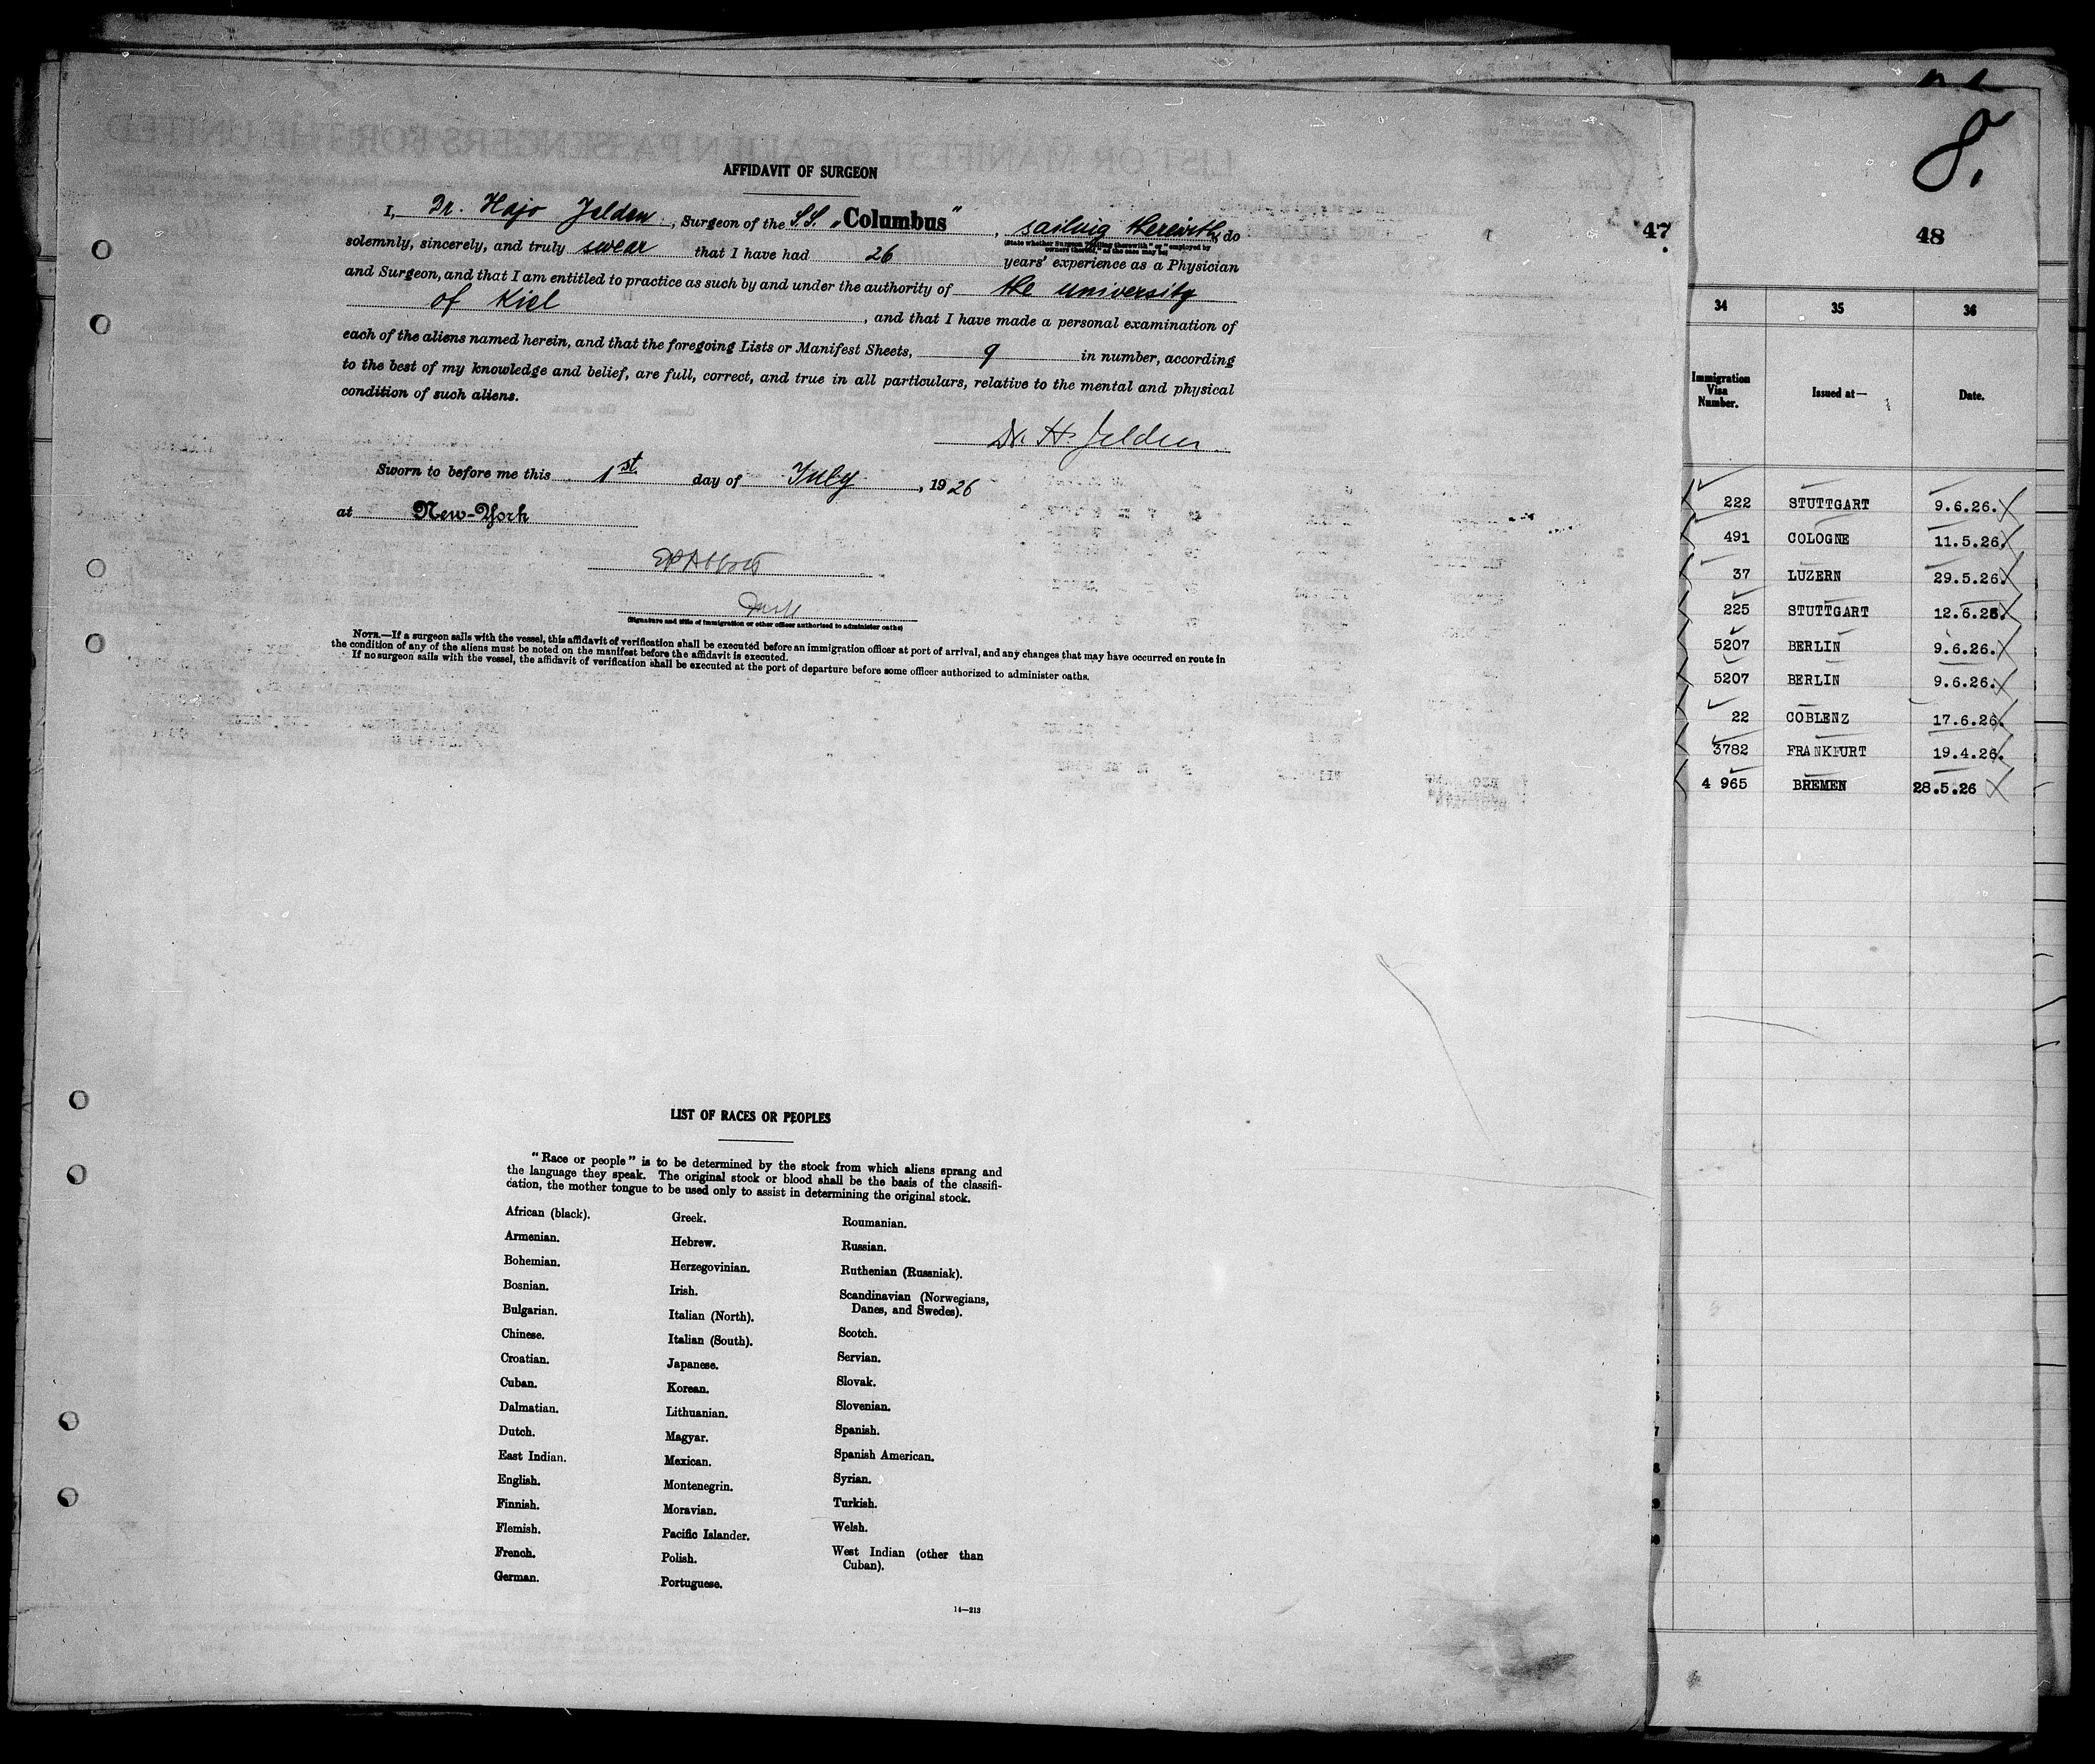 AFFIDAVIT OF SURGEON
I, Dr. Hajo Jelden, Surgeon of the S.S. „Columbus", sailing therewith, do
(State whether Surgeon "sailing therewith" or "employed by
owners thereof," as the case may be)
solemnly, sincerely, and truly swear that I have had 26 years' experience as a Physician
and Surgeon, and that I am entitled to practice as such by and under the authority of the university
of Kiel, and that I have made a personal examination of
each of the aliens named herein, and that the foregoing Lists or Manifest Sheets, 9 in number, according
to the best of my knowledge and belief, are full, correct, and true in all particulars, relative to the mental and physical
condition of such aliens.
Dr. H. Jelden
Sworn to before me this 1st day of July, 1926
at New-York
(Signature and title of immigration or other officer authorized to administer oaths)
NOTE.—If a surgeon sails with the vessel, this affidavit of verification shall be executed before an immigration officer at port of arrival, and any changes that may have occurred en route in
the condition of any of the aliens must be noted on the manifest before the affidavit is executed.
If no surgeon sails with the vessel, the affidavit of verification shall be executed at the port of departure before some officer authorized to administer oaths.
LIST OF RACES OR PEOPLES
"Race or people" is to be determined by the stock from which aliens sprang and
the language they speak. The original stock or blood shall be the basis of the classifi-
cation, the mother tongue to be used only to assist in determining the original stock.
African (black).
Armenian.
Bohemian.
Bosnian.
Bulgarian.
Chinese.
Croatian.
Cuban.
Dalmatian.
Dutch.
East Indian.
English.
Finnish.
Flemish.
French.
German.
Greek.
Hebrew.
Herzegovinian.
Irish.
Italian (North).
Italian (South).
Japanese.
Korean.
Lithuanian.
Magyar.
Mexican.
Montenegrin.
Moravian.
Pacific Islander.
Polish.
Portuguese.
Roumanian.
Russian.
Ruthenian (Russniak).
Scandinavian (Norwegians,
Danes, and Swedes).
Scotch.
Servian.
Slovak.
Slovenian.
Spanish.
Spanish American.
Syrian.
Turkish.
Welsh.
West Indian (other than
Cuban).
14—213
47
8.
48
34 35 36
Immigration Visa Number. Issued at— Date.
222 STUTTGART 9.6.26.
491 COLOGNE 11.5.26.
37 LUZERN 29.5.26.
225 STUTTGART 12.6.26.
5207 BERLIN 9.6.26.
5207 BERLIN 9.6.26.
22 COBLENZ 17.6.26.
3782 FRANKFURT 19.4.26.
4 965 BREMEN 28.5.26